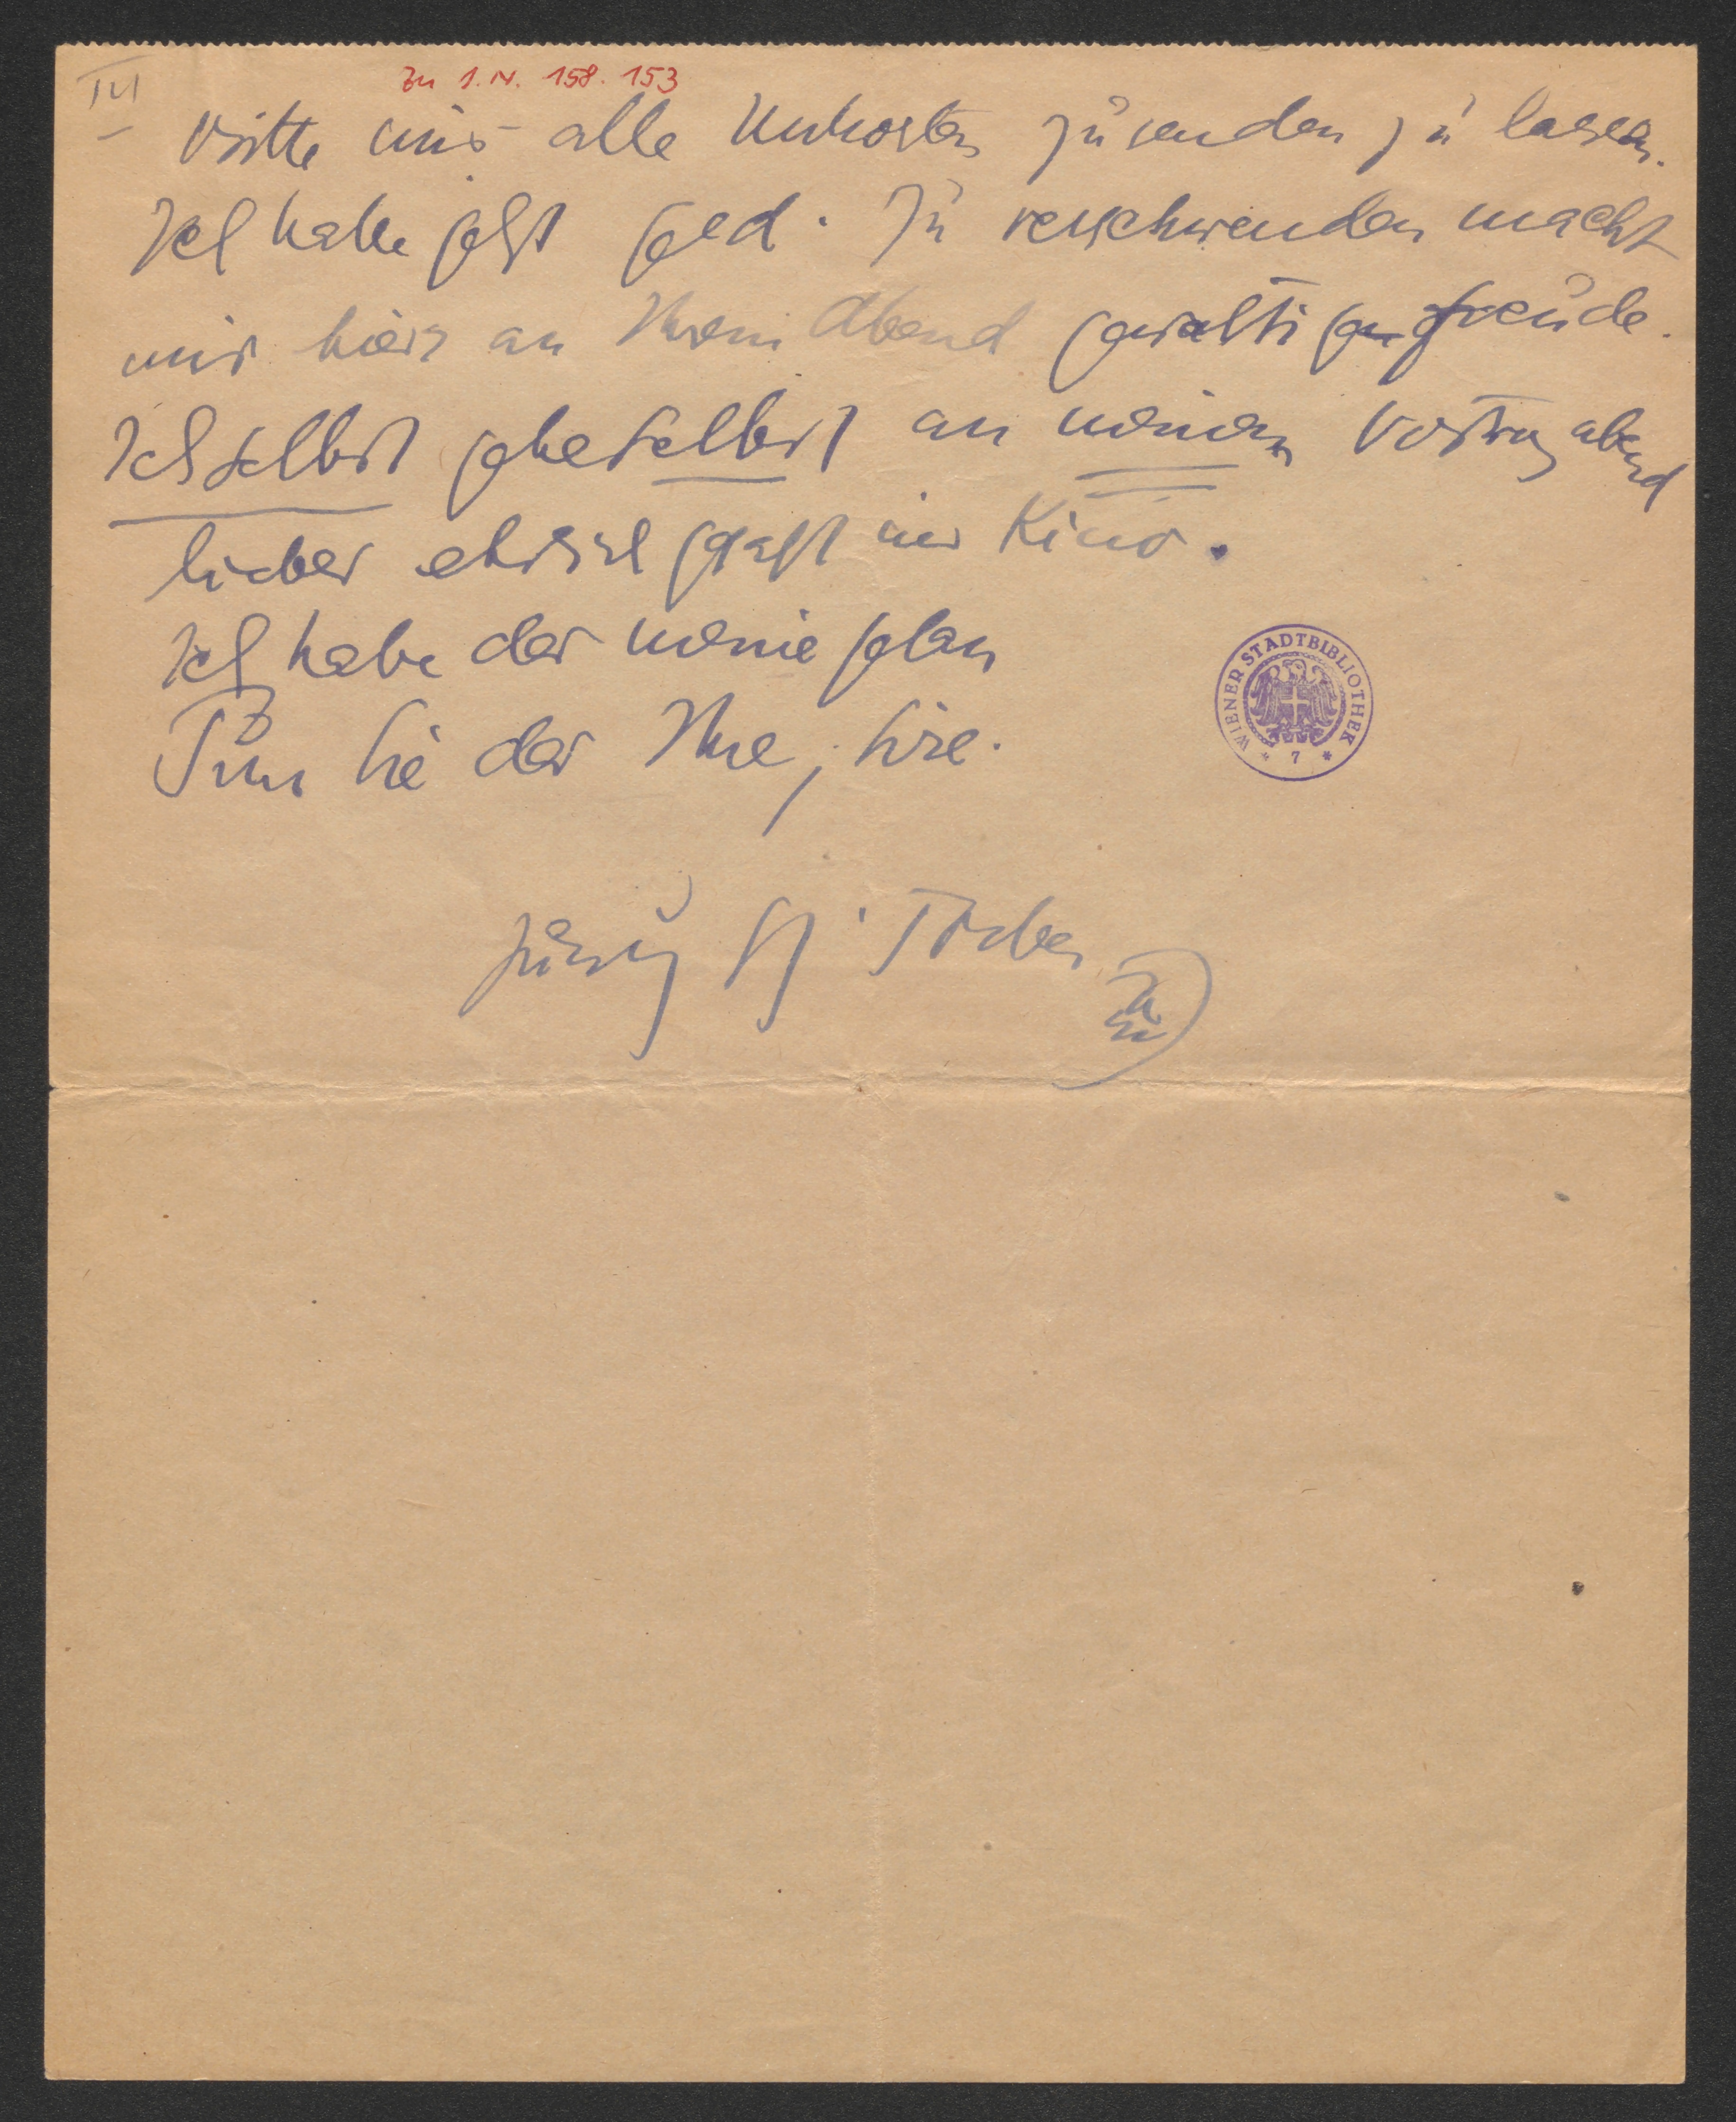 III
Zu I.N. 158.153
Bitte mir alle Unkosten zusenden zu lassen.
Ich habe jetzt Geld. Zu verschwenden macht
mir hier an Ihrem Abend gewaltige Freude.
Ich selbst gehe selbst an meinem Vortragabend
lieber ehrlich gesagt ins Kino.
Ich habe das meine getan
Tun Sie das Ihre, Sire.
WIENER STADTBIBLIOTHEK
* 7 *